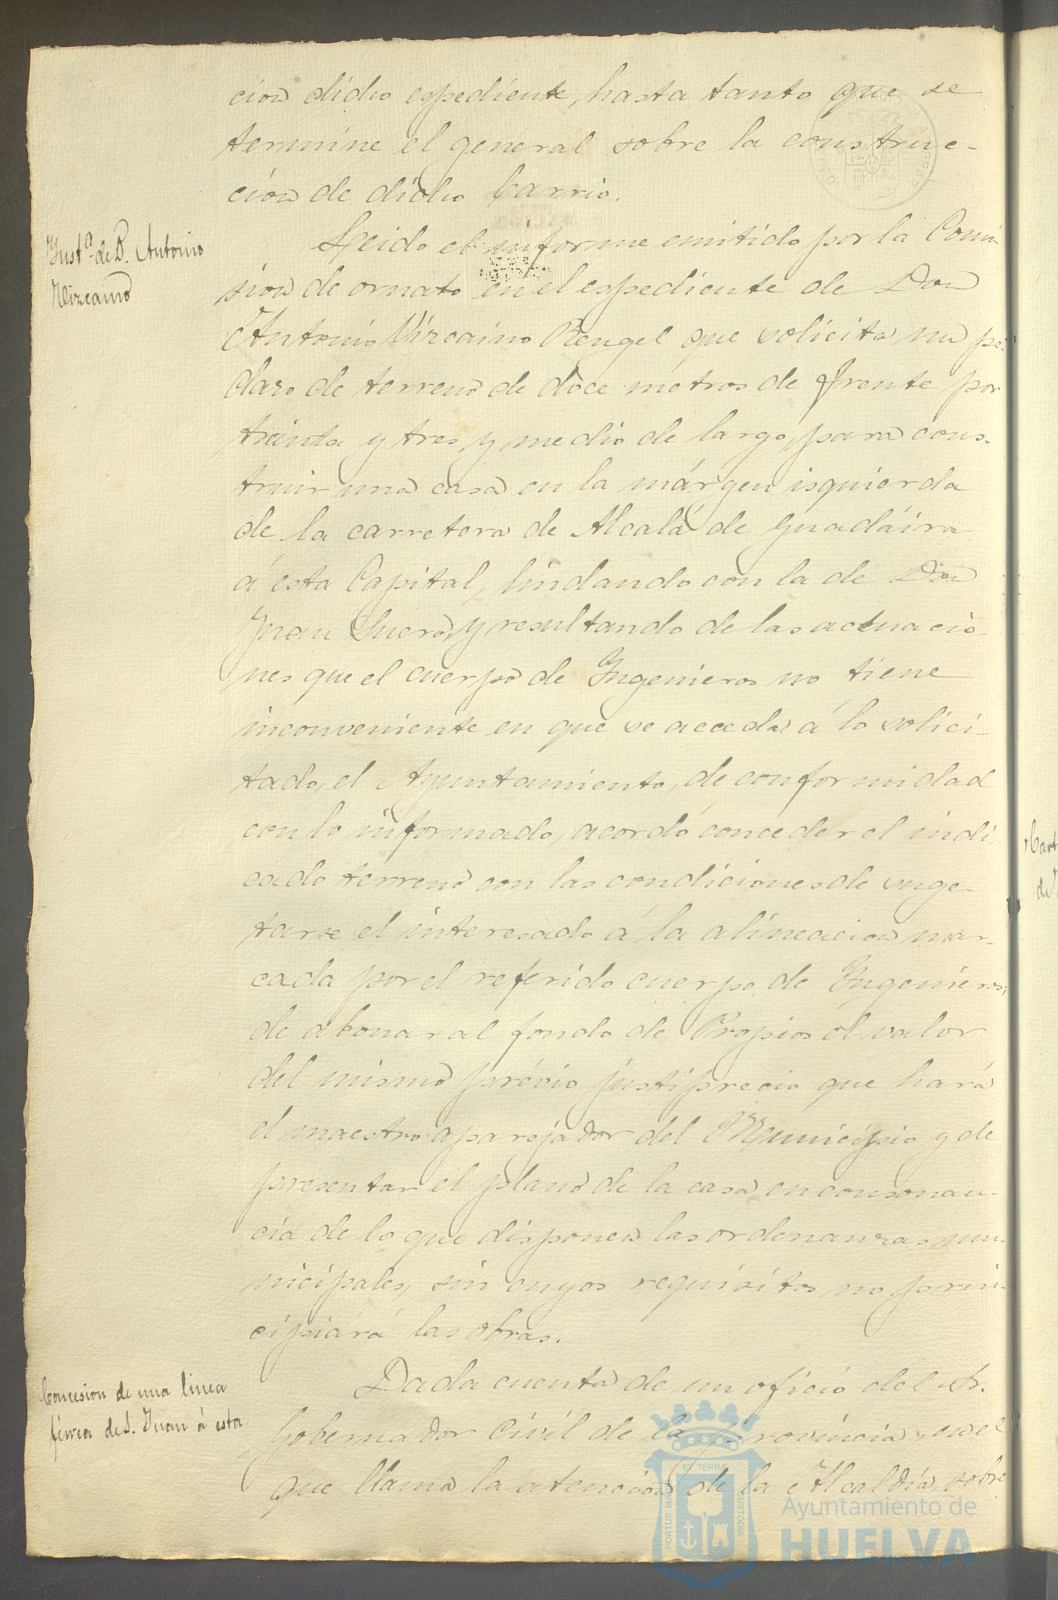 cion dicho espediente, hasta tanto que se
termine el general sobre la construc-
cion de dicho barrio.
Inst.ª de D. Antonio
Vizcaino
Leido el informe emitido por la Comi-
sion de ornato en el espediente de Don
Antonio Vizcaino Rengel que solicita un pe-
dazo de terreno de doce metros de frente por
treinta y tres y medio de largo, para cons-
truir una casa en la márgen isquierda
de la carretera de Alcalá de Guadáira
á esta Capital, lindando con la de Don
Juan Suero, y resultando de las actuacio-
nes que el cuerpo de Ingenieros no tiene
inconveniente en que se acceda á lo solici-
tado, el Ayuntamiento, de conformidad
con lo informado, acordó conceder el indi
cado terreno con las condiciones de suge-
tarse el interesado á la alineacion mar-
cada por el referido cuerpo de Ingenieros,
de abonar al fondo de Propios el valor
del mismo prévio justiprecio que hará
el maestro aparejador del Municipio y de
presentar el plano de la casa en consonan-
cia de lo que disponen las ordenanzas mu-
nicipales, sin cuyos requisitos no prin-
cipiará las obras.
Concesion de una linea
férrea de S. Juan á esta
Dada cuenta de un oficio del Sr.
Gobernador Civil de la provincia, en el
que llama la atencion de la Alcaldía, sobre
PORTUS MARIS ET TERRAE CUSTODIA
Ayuntamiento de
HUELVA